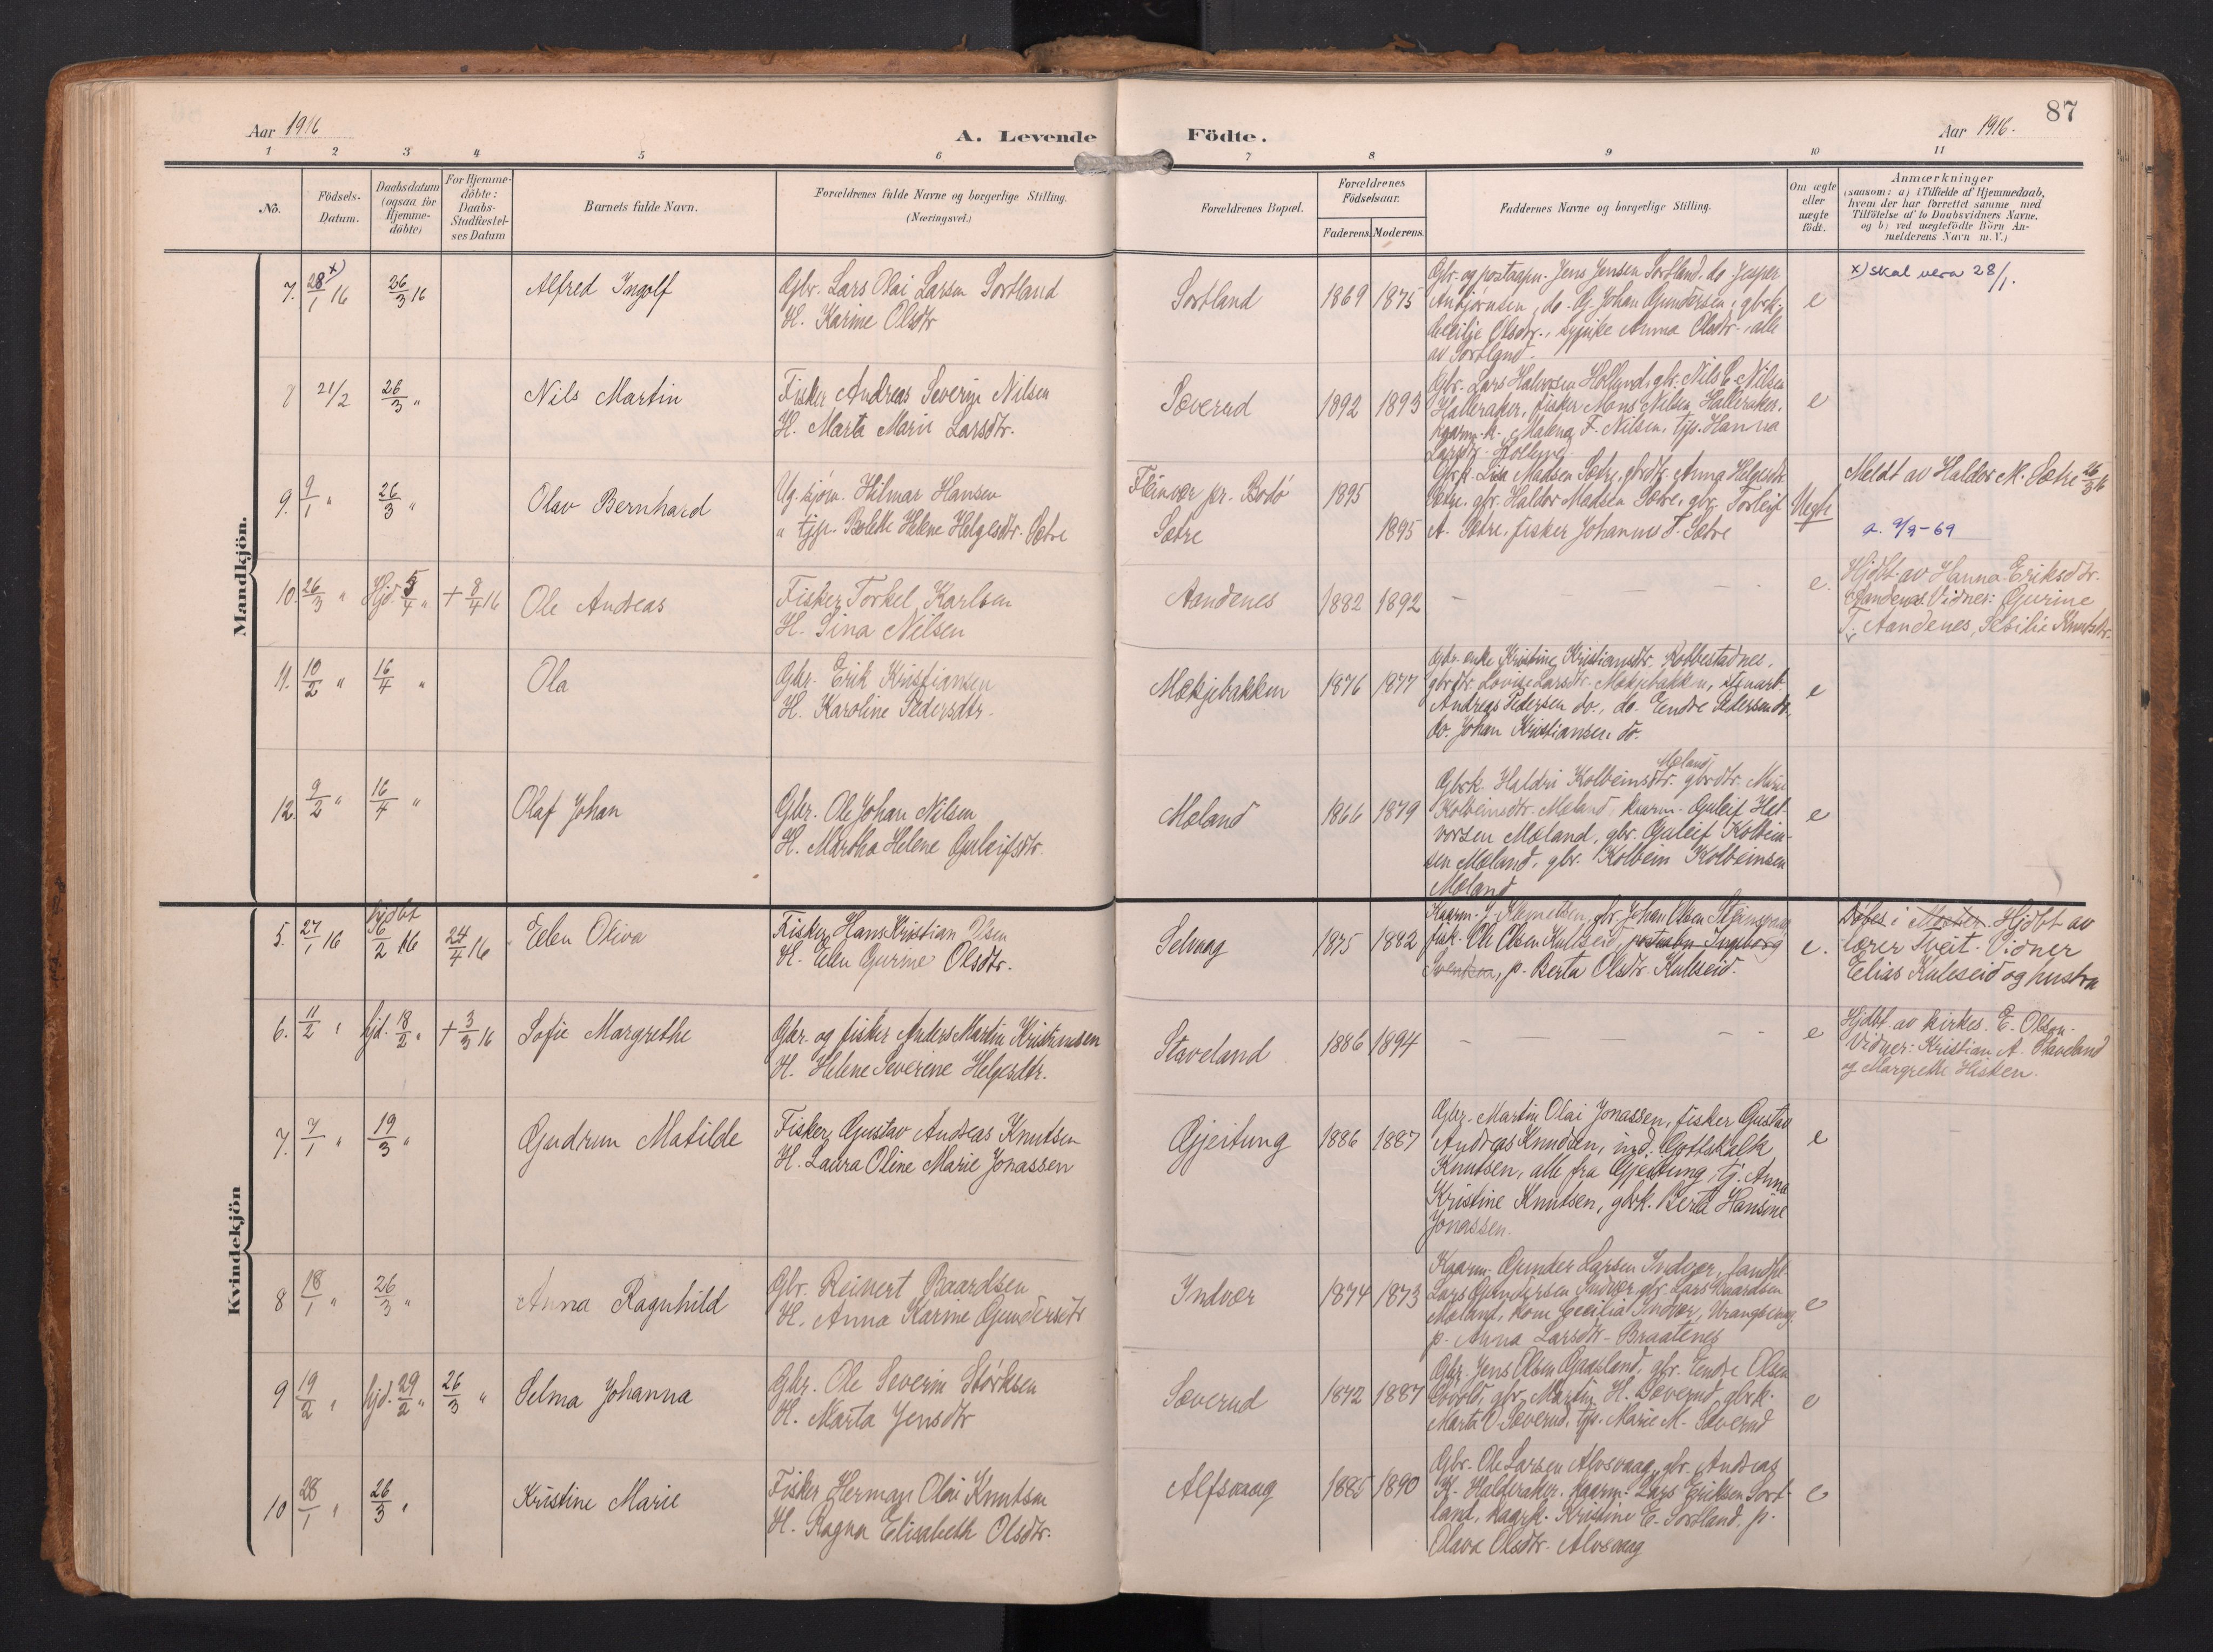 87
Aar 1916
A. Levende Födte.
Aar 1916.
1 2 3 4 5 6 7 8 9 10 11
No.
Födsels-
Datum.
Daabsdatum
(ogsaa for
Hjemme-
döbte)
For Hjemme-
döbte:
Daabs-
Stadfæstel-
ses Datum
Barnets fulde Navn.
Forældrenes fulde Navne og borgerlige Stilling.
(Næringsvei.)
Forældrenes Bopæl.
Forældrenes
Födselsaar.
Faderens. Moderens.
Faddernes Navne og borgerlige Stilling.
Om ægte
eller
uægte
födt.
Anmærkninger
(saasom: a) i Tilfælde af Hjemmedaab,
hvem der har forrettet samme med
Tilföielse af to Daabsvidners Navne,
og b) ved uægtefödte Börn An-
melderens Navn m. V.)
Mandkjön.
7. 28/1 16 x) 26/3 16 Alfred Ingolf
Gbr. Lars Olai Larsen Sortland
H. Karine Olsdtr
Sortland 1869 1875
Gbr. og postaapn. Jens Jensen Sortland, do. Jesper
Anbjørnsen, do. G. Johan Gundersen, gbrk.
Cecilje Olsdtr., sypike Anna Olsdtr., alle
av Sortland.
e
x) skal vera 28/1.
8 21/2 26/3 " Nils Martin
Fisker Andreas Severin Nilsen
H. Marta Marie Larsdtr.
Sæverud 1892 1893
Gbr. Lars Halvorsen Hollund, gbr. Nils E. Nilsen
Halleraker, fisker Mons Nilsen Halleraker,
kaarm.k. Malena F. Nilsen, tjp. Hanna
Larsdtr. Hollund
e
9. 9/1 " 26/3 " Olav Bernhard
Ug. sjøm. Hilmar Hansen
" tjp. Bolette Helene Helgesdtr. Sætre
Fleinvær pr. Bodø 1895
Sætre 1895
Gbrk. Lisa Madsen Sætre, gbrdtr. Anna Helgesdtr.
Sætre, gbr. Haldor Madsen Sætre, gbr. Torleif
A. Sætre, fisker Johannes T. Sætre
Uegte
Meldt av Haldor M. Sætre 26/3 16
a. 9/9-69
10. 26/3 " Hjd. 5/4 " + 8/4 16 Ole Andreas
Fisker Torkel Karlsen
H. Sina Nilsen
Aandenes 1882 1892
e.
Hjdbt. av Hanna Eriksdtr.
Aandenes. Vidner: Gurine
T. Aandenes, Sesilie Knutsdtr.
11. 10/2 " 16/4 " Ola
Gbr. Erik Kristiansen
H. Karoline Pedersdtr.
Mækjebakken 1876 1877
Gbr. enke Kristine Kristiansdtr. Robbestadnes,
gbrdtr. Lovise Larsdtr. Mækjebakken, stenarb.
Andreas Pedersen do., do. Endre Pedersen do.
do. Johan Kristiansen do.
e
12. 9/2 " 16/4 " Olaf Johan
Gbr. Ole Johan Nilsen
H. Martha Helene Guleifsdtr.
Mæland 1866 1879
Mæland,
Gbrk. Haldri Kolbeinsdtr. gbrdtr. Marie
Kolbeinsdtr. Mæland, kaarm. Guleif Hal-
vorsen Mæland, gbr. Guleif Kolbein-
sen Mæland, gbr. Kolbein Kolbeinsen
Mæland
e
Kvindekjön
5. 27/1 16 hjdbt 16/2 16 24/4 16 Elen Oliva
Fisker Hans Kristian Olsen
H. Elen Gurine Olsdtr.
Selvaag 1875 1882
Kaarm. J. Klemetsen, gbr. Johan Olsen
fisk. Ole Olsen Kuleseid, Ingeborg
p. Berta Olsdtr. Kuleseid.
e.
Døbes i Møster. Hjdbt av
lærer Tveit. Vidner
Elias Kuleseid og hustru
6. 11/2 " hjd. 18/2 " + 3/3 16 Sofie Margrethe
Gbr. og fisker Anders Martin Kristensen
H. Helene Severine Helgesdtr.
Staveland 1886 1894
e
Hjdbt av kirkes. E. Olsen.
Vidner: Kristian A. Staveland
og Margrethe Hisken.
7. 7/1 " 19/3 " Gudrun Matilde
Fisker Gustav Andreas Knutsen
H. Laura Oline Marie Jonassen
Gjeitung 1886 1887
Gbr. Martin Olai Jonassen, fisker Gustav
Andreas Knudsen, ind. Gottskalk
Knutsen, alle fra Gjeitung, tj. Anna
Kristine Knutsen, gbrk. Berta Hansine
Jonassen.
e
8 18/1 " 26/3 " Anna Ragnhild
Gbr. Reinert Baardsen
H. Anna Karine Gundersdtr
Indvær 1874 1873
Kaarm. Gunder Larsen Indvær, landh.
Lars Gundersen Indvær, gbr. Lars Baardsen
Mæland, kone Cecilia Indvær, Vrangsvaag,
p. Anna Larsdtr. Braatenes
e
9 19/2 " hjd. 29/2 " 26/3 " Selma Johanna
Gbr. Ole Severin Størksen
H. Marta Jensdtr
Sæverud 1872 1887
Gbr. Jens Olsen Gaasland, gbr. Endre Olsen
gbr. Martin H. Sæverud, gbrk.
Marta O. Sæverud, tjp. Marie M. Sæverud
e
10 28/1 " 26/3 " Kristine Marie
Fisker Herman Olai Knutsen
H. Ragna Elisabeth Olsdtr.
Alfsvaag 1885 1890
Gbr. Ole Larsen Alvsvaag, gbr. Andreas
K. Halderaker, kaarm. Lars Eriksen Sort-
land, kaark. Kristine E. Sortland, p.
Olava Olsdtr. Alvsvaag
e